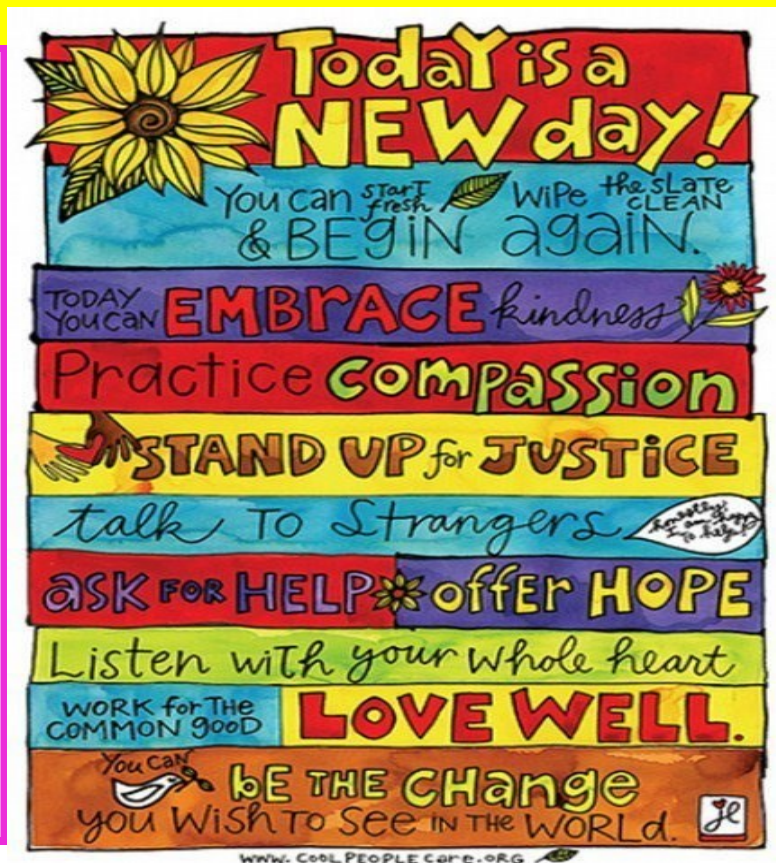 Today is a
NEW day!
You can start fresh WiPe the sLATE CLEAN
& BEgiN agaiN.
TODAY YOU CAN EMBrACE kindness
Practice compassion
STAND UP for JUSTiCE
talk To Strangers
honestly! I am happy to help!
ask FOR HELP offEr HOPE
Listen wiTh your whole heart
WORK for THE COMMON gooD LOVE WELL.
You CaN bE THE CHange
you WisH TO See IN THE WORLd.
je
www.CooLPEOPLECare.ORG